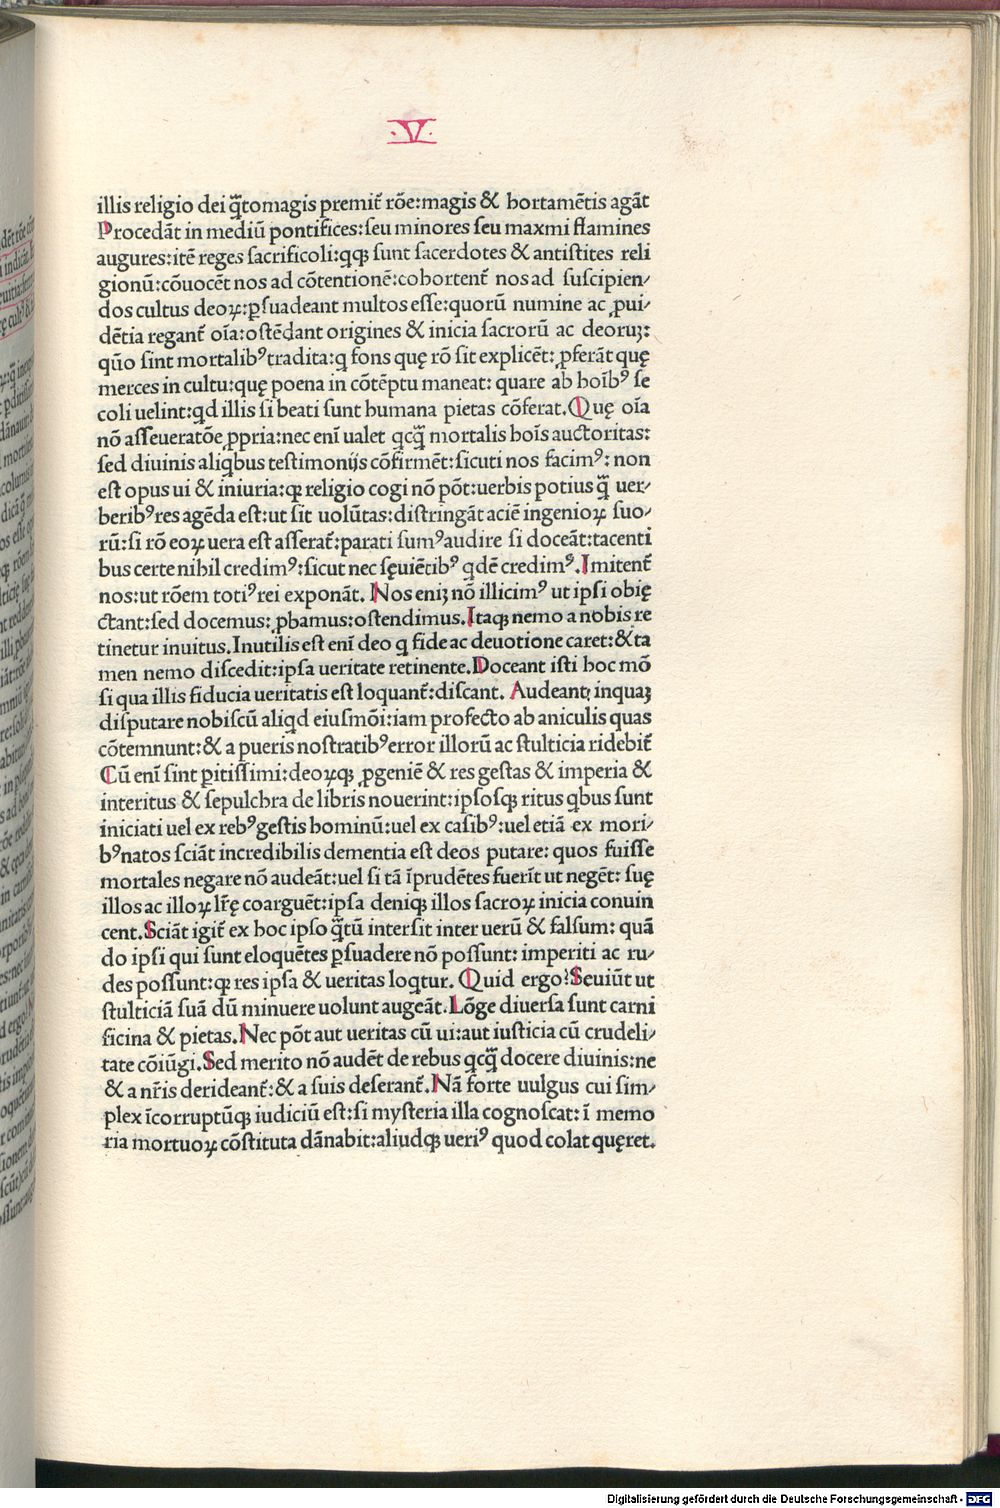 ·V·
illis religio dei q̃tomagis premit̃ rõe:magis & hortamẽtis agãt
Procedãt in mediũ pontifices:seu minores seu maxmi flamines
augures:itẽ reges sacrificoli:qꝗ sunt sacerdotes & antistites reli
gionũ:cõuocẽt nos ad cõtentionẽ:cohortent̃ nos ad suscipien/
dos cultus deoꝝ:ꝑsuadeant multos esse:quorũ numine ac ꝓui/
dẽtia regant̃ oĩa:ostẽdant origines & inicia sacrorũ ac deoruꝫ:
quõ sint mortalibꝰ tradita:q fons quę rõ sit explicẽt: ꝓferãt quę
merces in cultu:quę poena in cõtẽptu maneat: quare ab hoĩbꝰ se
coli uelint:qd illis si beati sunt humana pietas cõferat.Quę oĩa
nõ asseueratõe ꝓpria:nec enĩ ualet qcq̃ mortalis hoĩs auctoritas:
sed diuinis aliqbus testimonijs cõfirmẽt:sicuti nos facimꝰ: non
est opus ui & iniuria:qꝛ religio cogi nõ põt:uerbis potius q̃ uer/
beribꝰ res agẽda est:ut sit uolũtas:distringãt aciẽ ingenioꝝ suo/
rũ:si rõ eoꝝ uera est asserat̃:parati sumꝰ audire si doceãt:tacenti
bus certe nihil credimꝰ:sicut nec sęuiẽtibꝰ qdẽ credimꝰ.Imitent̃
nos:ut rõem totiꝰ rei exponãt. Nos eniꝫ nõ illicimꝰ ut ipsi obię
ctant:sed docemus: ꝓbamus:ostendimus.Itaqꝫ nemo a nobis re
tinetur inuitus.Inutilis est enĩ deo q fide ac deuotione caret:& ta
men nemo discedit:ipsa ueritate retinente.Doceant isti hoc mõ
si qua illis fiducia ueritatis est loquant̃:discant. Audeant inquaꝫ
disputare nobiscũ aliqd eiusmõi:iam profecto ab aniculis quas
cõtemnunt:& a pueris nostratibꝰ error illorũ ac stulticia ridebit̃
Cũ enĩ sint ꝑitissimi:deoꝝqꝫ ꝓgeniẽ & res gestas & imperia &
interitus & sepulchra de libris nouerint:ipsosqꝫ ritus qbus sunt
iniciati uel ex rebꝰ gestis hominũ:uel ex casibꝰ:uel etiã ex mori/
bꝰ natos sciãt incredibilis dementia est deos putare: quos fuisse
mortales negare nõ audeãt:uel si tã ĩprudẽtes fuerĩt ut negẽt: suę
illos ac illoꝝ lr̃ę coarguẽt:ipsa deniqꝫ illos sacroꝝ inicia conuin
cent.Sciãt igit̃ ex hoc ipso q̃tũ intersit inter uerũ & falsum: quã
do ipsi qui sunt eloquẽtes ꝑsuadere nõ possunt: imperiti ac ru/
des possunt:qꝛ res ipsa & ueritas loqtur. Quid ergo?Seuiũt ut
stulticiã suã dũ minuere uolunt augeãt.Lõge diuersa sunt carni
ficina & pietas.Nec põt aut ueritas cũ ui:aut iusticia cũ crudeli/
tate cõiũgi.Sed merito nõ audẽt de rebus qcq̃ docere diuinis:ne
& a nr̃is derideant̃:& a suis deserant̃.Nã forte uulgus cui sim/
plex ĩcorruptũqꝫ iudiciũ est:si mysteria illa cognoscat: ĩ memo
ria mortuoꝝ cõstituta dãnabit:aliudqꝫ ueriꝰ quod colat quęret.
Digitalisierung gefördert durch die Deutsche Forschungsgemeinschaft - DFG